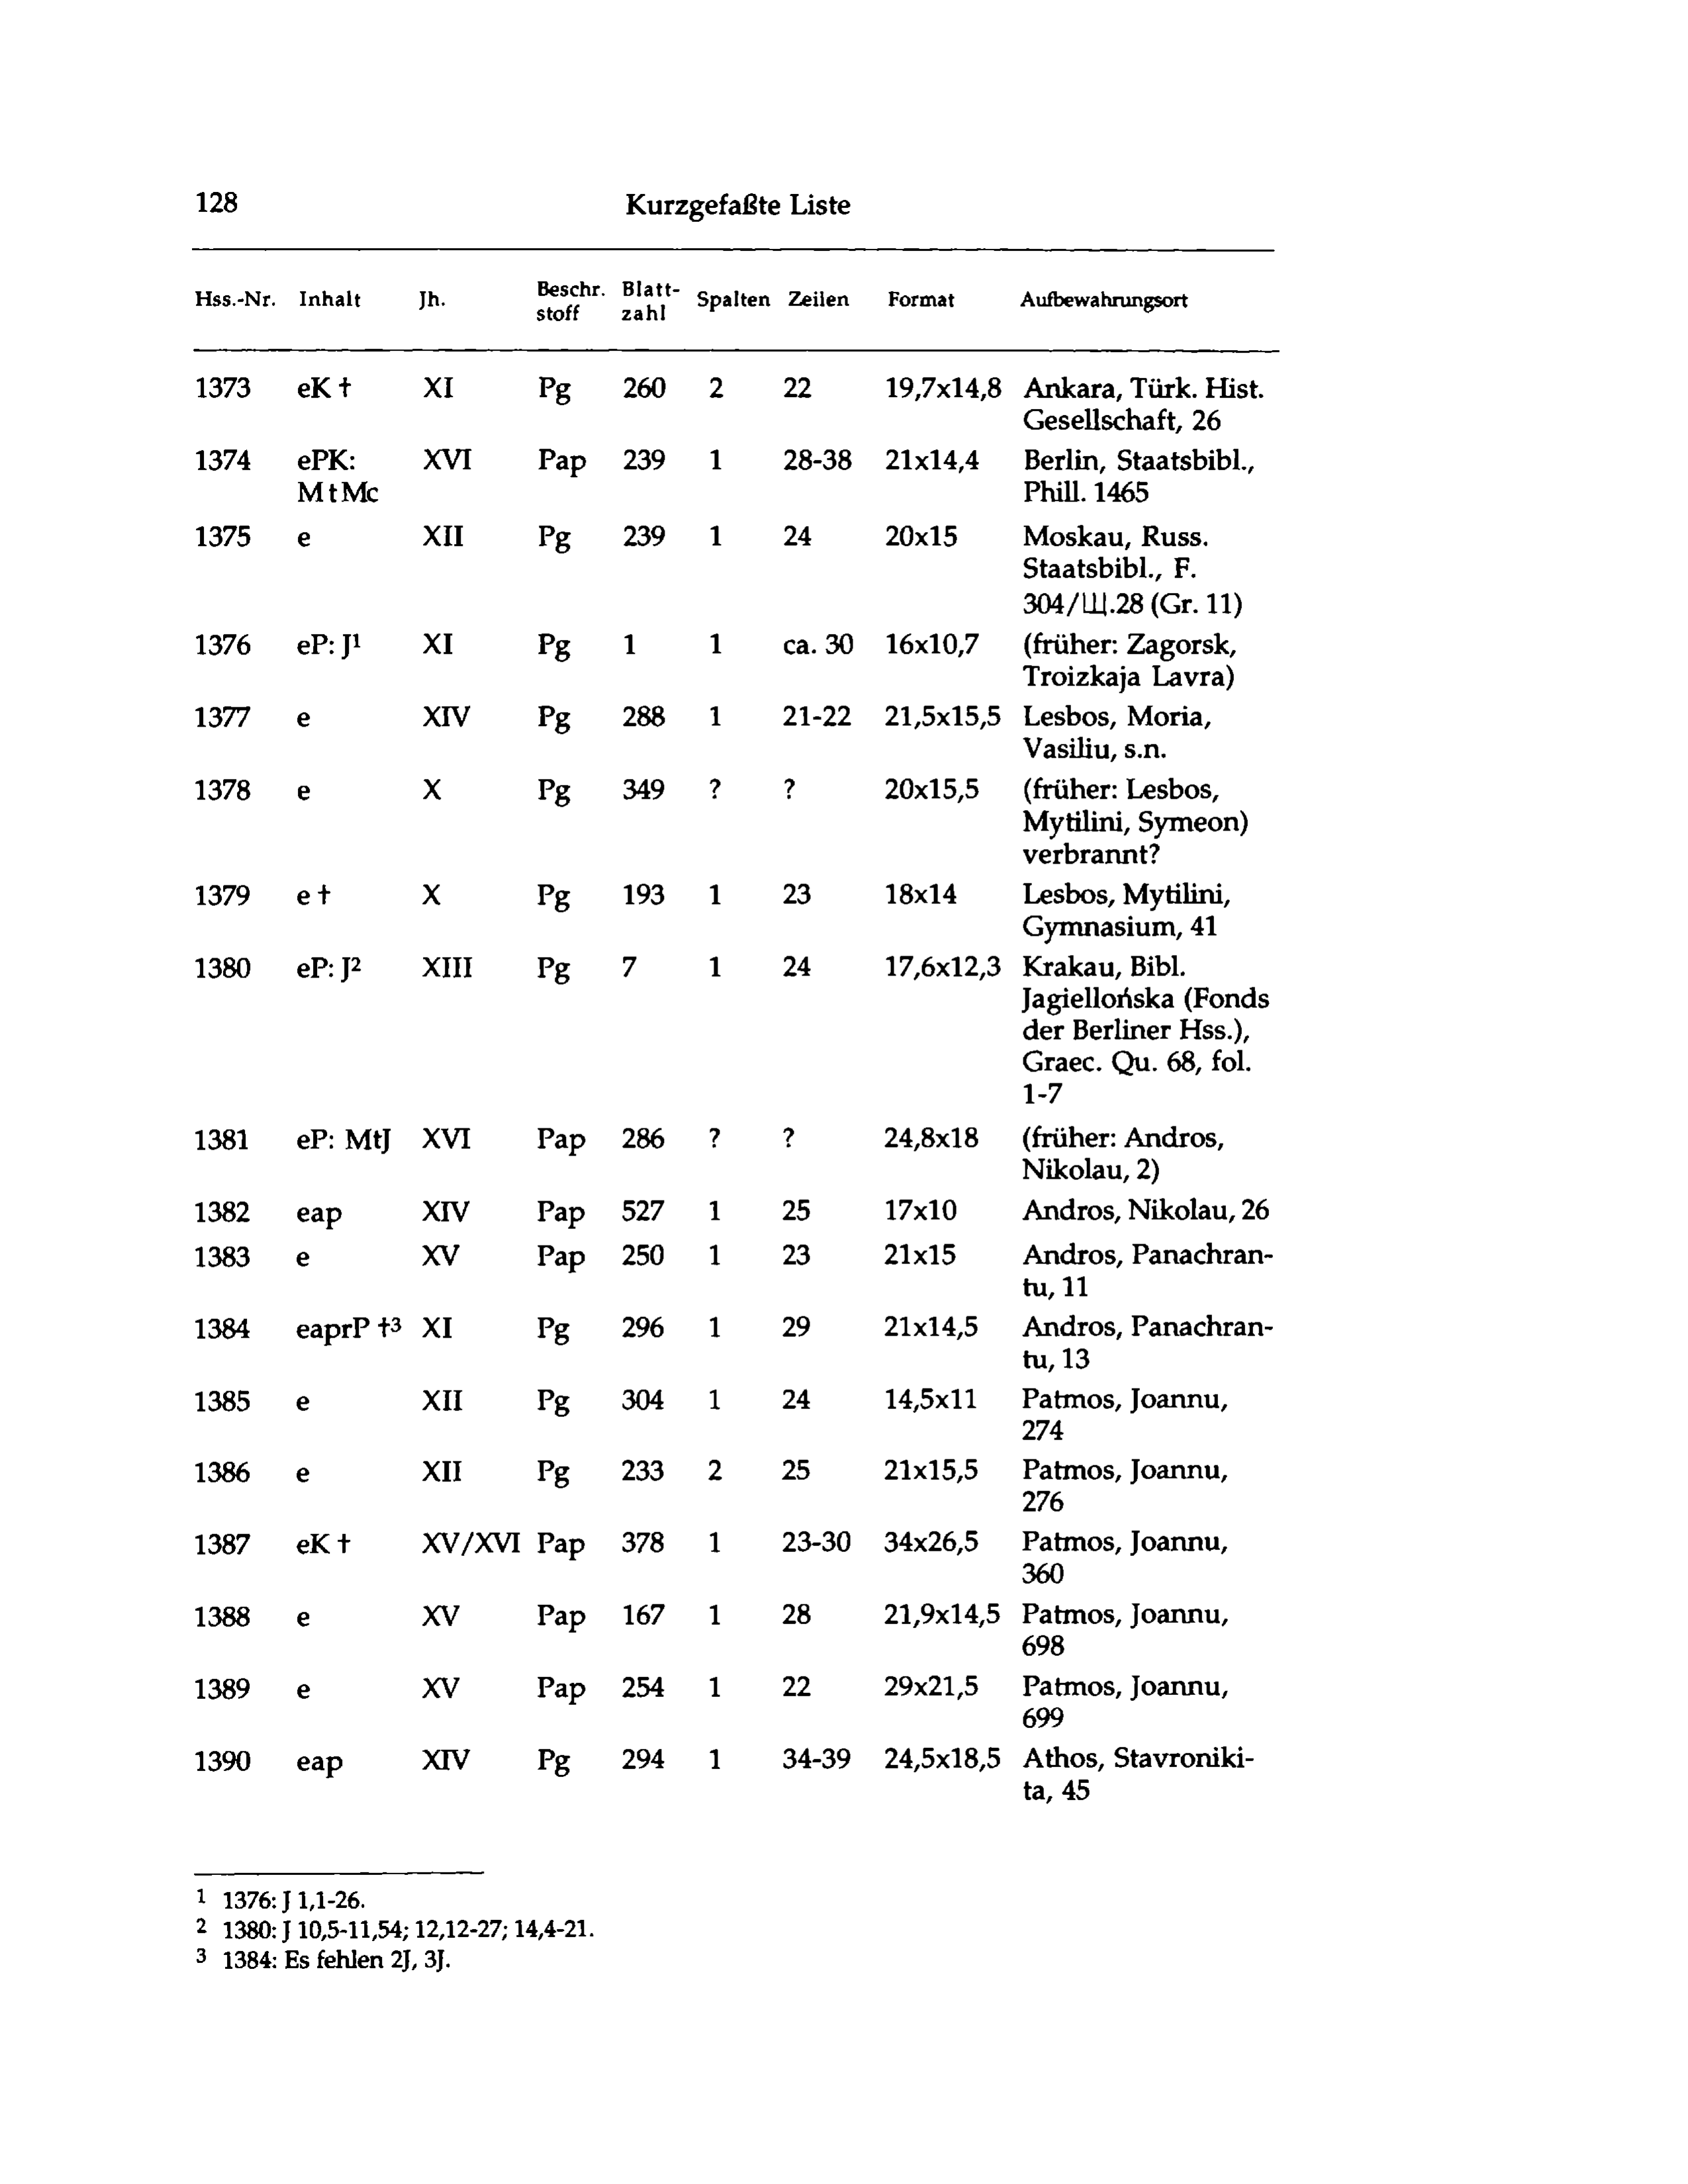 128 Kurzgefaßte Liste
Hss.-Nr. Inhalt Jh. Beschr. stoff Blatt- zahl Spalten Zeilen Format Aufbewahrungsort
1373 eK † XI Pg 260 2 22 19,7x14,8 Ankara, Türk. Hist.
Gesellschaft, 26
1374 ePK: XVI Pap 239 1 28-38 21x14,4 Berlin, Staatsbibl.,
MtMc Phill. 1465
1375 e XII Pg 239 1 24 20x15 Moskau, Russ.
Staatsbibl., F.
304/Ш.28 (Gr. 11)
1376 eP: J¹ XI Pg 1 1 ca. 30 16x10,7 (früher: Zagorsk,
Troizkaja Lavra)
1377 e XIV Pg 288 1 21-22 21,5x15,5 Lesbos, Moria,
Vasiliu, s.n.
1378 e X Pg 349 ? ? 20x15,5 (früher: Lesbos,
Mytilini, Symeon)
verbrannt?
1379 e † X Pg 193 1 23 18x14 Lesbos, Mytilini,
Gymnasium, 41
1380 eP: J² XIII Pg 7 1 24 17,6x12,3 Krakau, Bibl.
Jagiellońska (Fonds
der Berliner Hss.),
Graec. Qu. 68, fol.
1-7
1381 eP: MtJ XVI Pap 286 ? ? 24,8x18 (früher: Andros,
Nikolau, 2)
1382 eap XIV Pap 527 1 25 17x10 Andros, Nikolau, 26
1383 e XV Pap 250 1 23 21x15 Andros, Panachran-
tu, 11
1384 eaprP †³ XI Pg 296 1 29 21x14,5 Andros, Panachran-
tu, 13
1385 e XII Pg 304 1 24 14,5x11 Patmos, Joannu,
274
1386 e XII Pg 233 2 25 21x15,5 Patmos, Joannu,
276
1387 eK † XV/XVI Pap 378 1 23-30 34x26,5 Patmos, Joannu,
360
1388 e XV Pap 167 1 28 21,9x14,5 Patmos, Joannu,
698
1389 e XV Pap 254 1 22 29x21,5 Patmos, Joannu,
699
1390 eap XIV Pg 294 1 34-39 24,5x18,5 Athos, Stavroniki-
ta, 45
¹ 1376: J 1,1-26.
² 1380: J 10,5-11,54; 12,12-27; 14,4-21.
³ 1384: Es fehlen 2J, 3J.